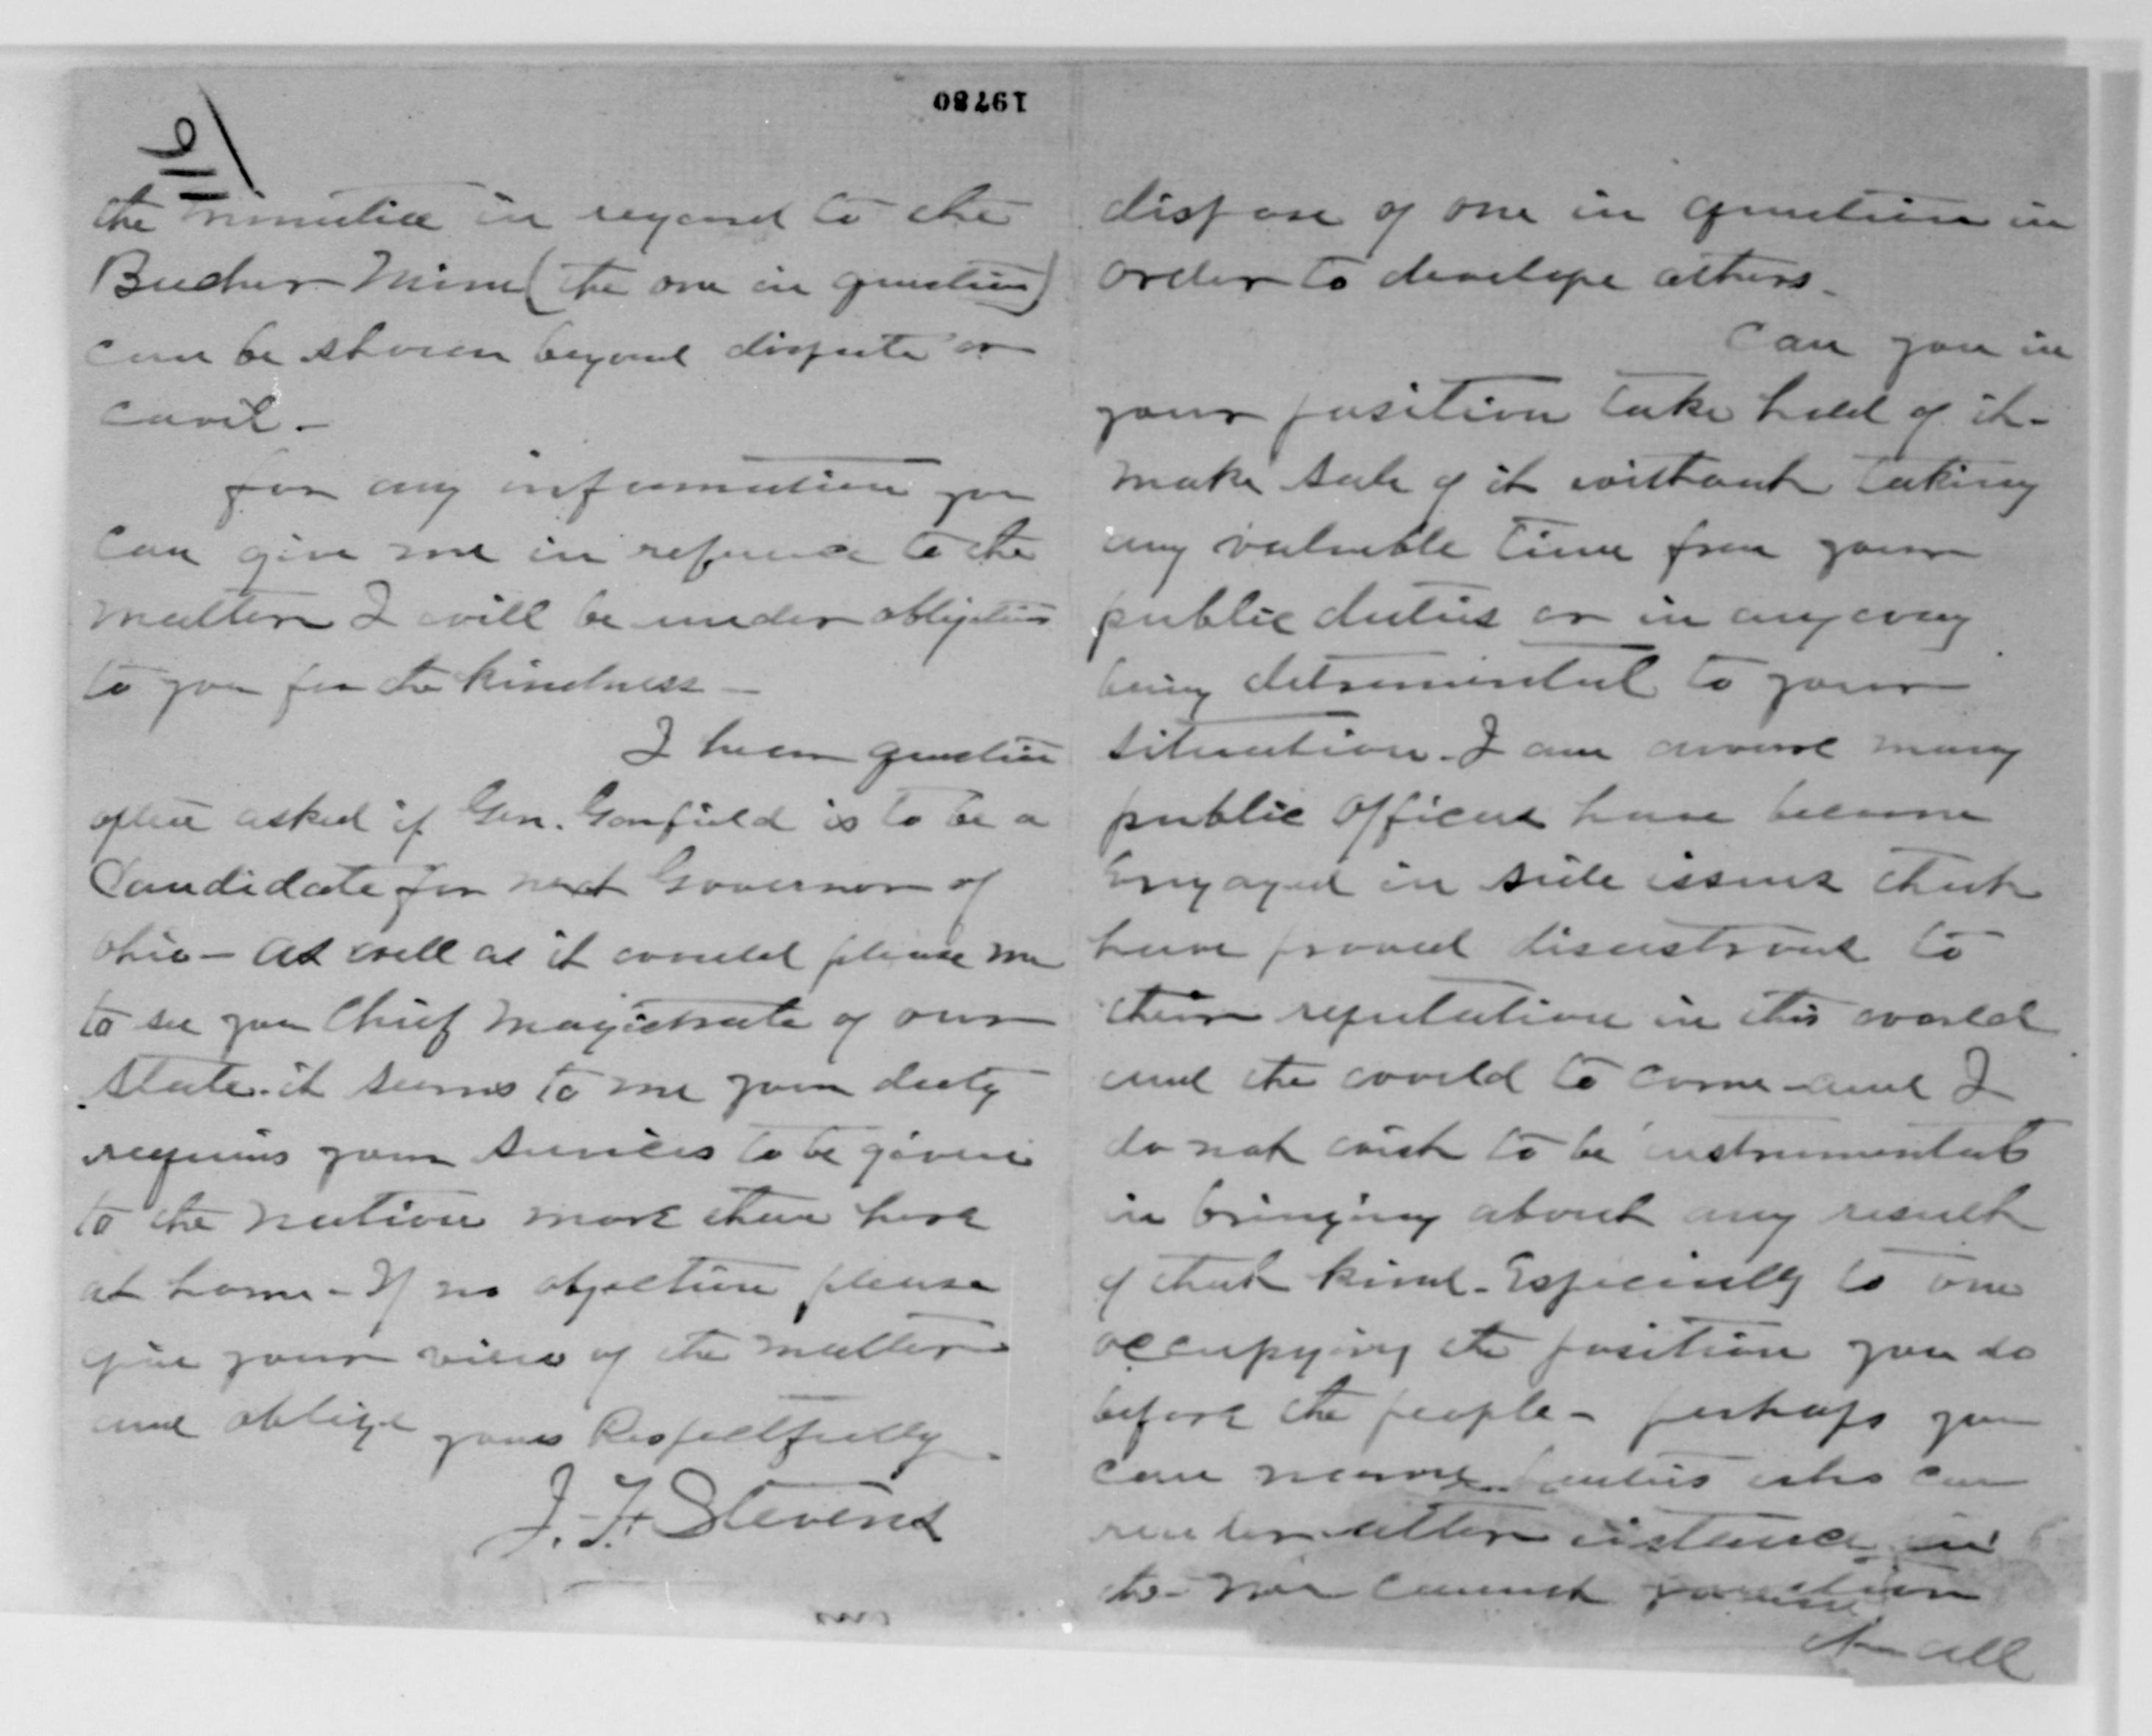 19780
dispose of one in question in
order to develope others.
Can you in
your position take hold of it-
make sale of it without taking
any valuable time from your
public duties or in any way
being detrimental to your
situation. I am aware many
public Officers have become
Engaged in side issues that
have proved disastrous to
their reputation in this world
and the world to come - and I
do not wish to be instrumental
in bringing about any result
of that kind - Especially to one
occupying the position you do
before the people - perhaps you
can name parties who can
render
in
cannot
all
the minutiae in regard to the
Mine (the one in question)
can be shown beyond dispute or
cavil -
for any information you
can give me in reference to the
matter I will be under obligation
to you for the kindness -
I hear question
often asked if Gen. Garfield is to be a
Candidate for next Governor of
Ohio - As well as it would please me
to see you Chief Magistrate of our
State. it seems to me your duty
requires your services to be given
to the nation more than here
at home - If no objection please
give your view of the matter
and oblige yours Respectfully
J. F. Stevens